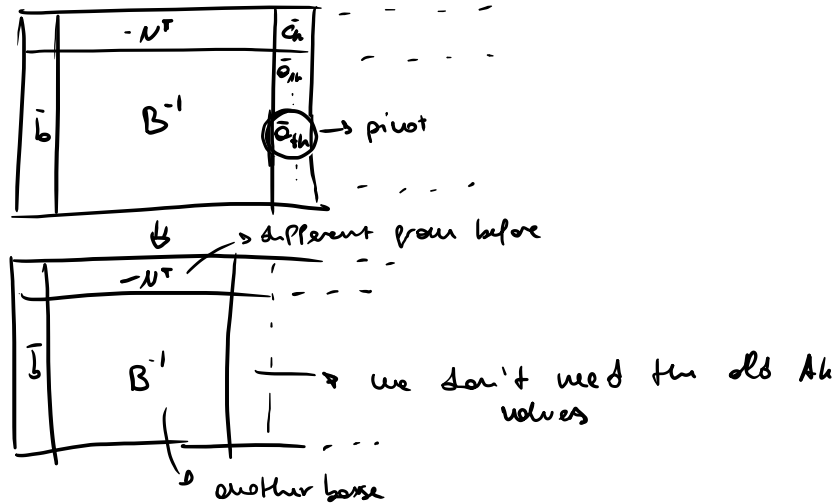 -NT c̄h
ā1h
b̄ B-1 āth → pivot
different from before
-NT
b̄ B-1 we don't need the old Ah
values
another base